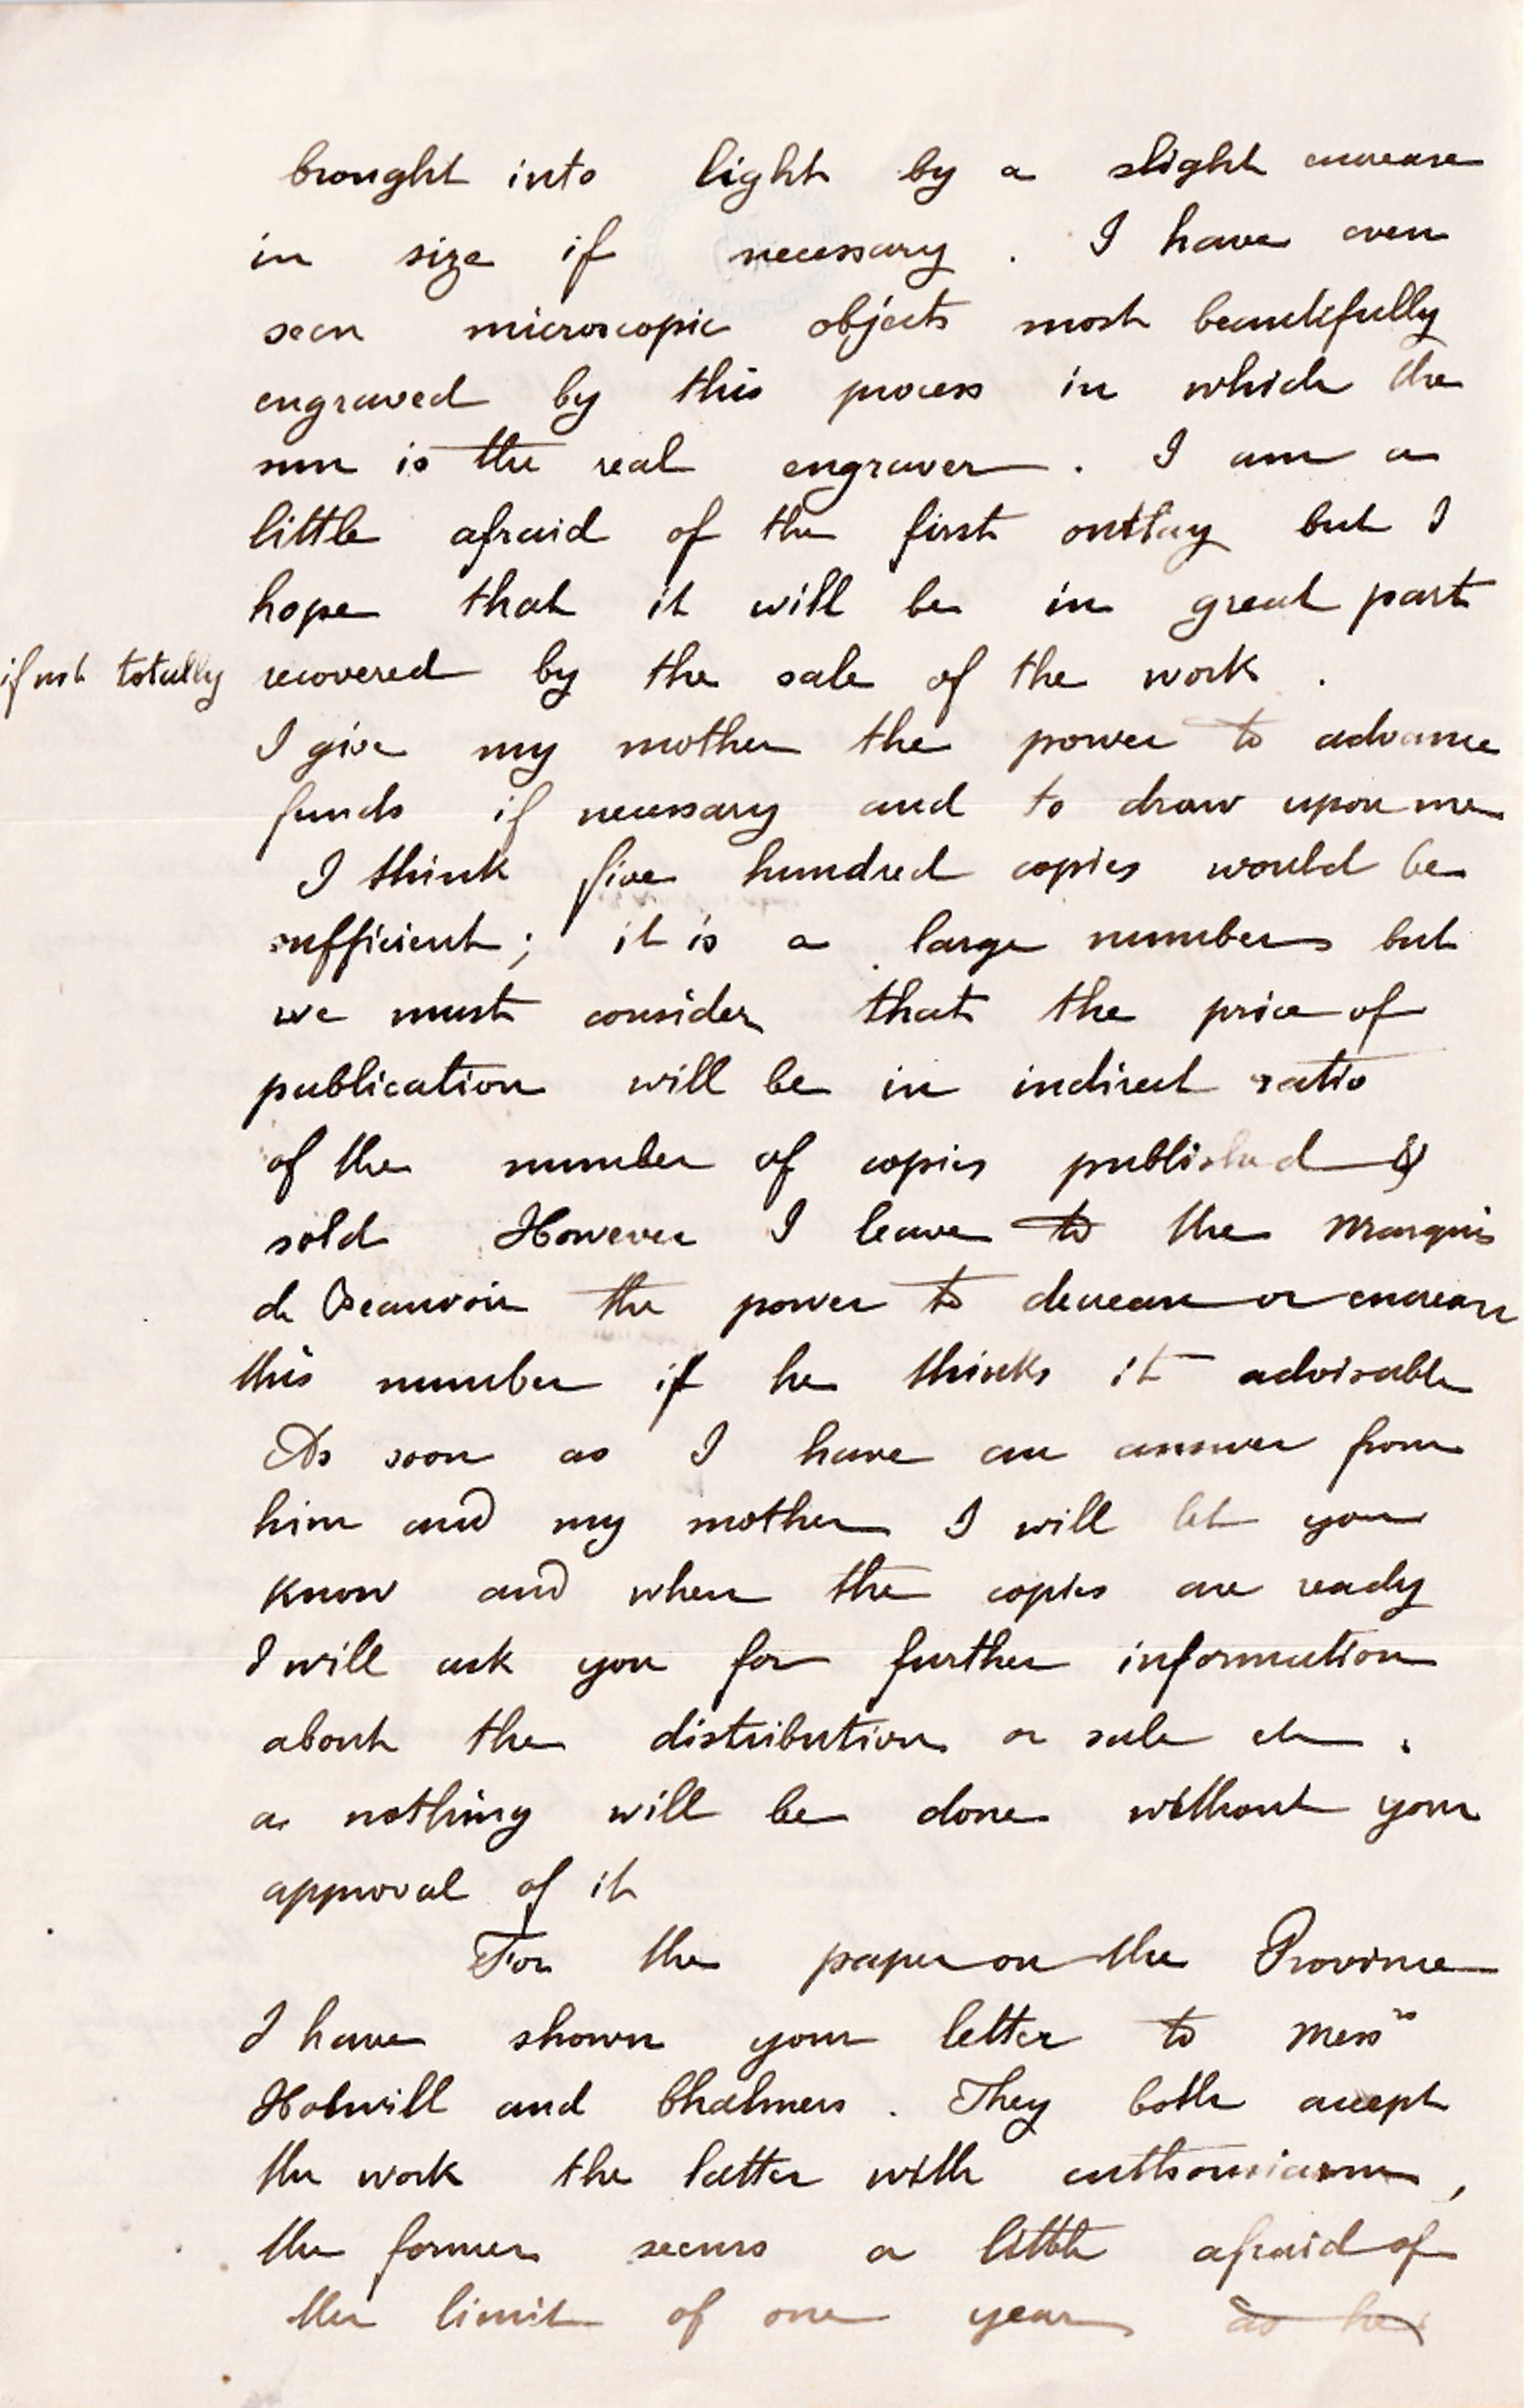 brought into light by a slight encrease
in size if necessary . I have even
seen microscopic objects most beautifully
engraved by this process in which the
sun is the real engraver . I am a
little afraid of the first outlay but I
hope that it will be in great part
if not totally recovered by the sale of the work .
I give my mother the power to advance
funds if necessary and to draw upon me
I think five hundred copies would be
sufficient ; it is a large number but
we must consider that the price of
publication will be in indirect ratio
of the number of copies published &
sold However I leave to the Marquis
de Beauvoir the power to decrease or encrease
this number if he thinks it advisable
As soon as I have an answer from
him and my mother I will let you
know and when the copies are ready
I will ask you for further information
about the distribution or sale etc .
as nothing will be done without your
approval of it
For the paper on the Province
I have shown your letter to Messrs
Holwill and Chalmers . They both accept
the work the latter with enthousiasm ,
the former seems a little afraid of
the limit of one year as he